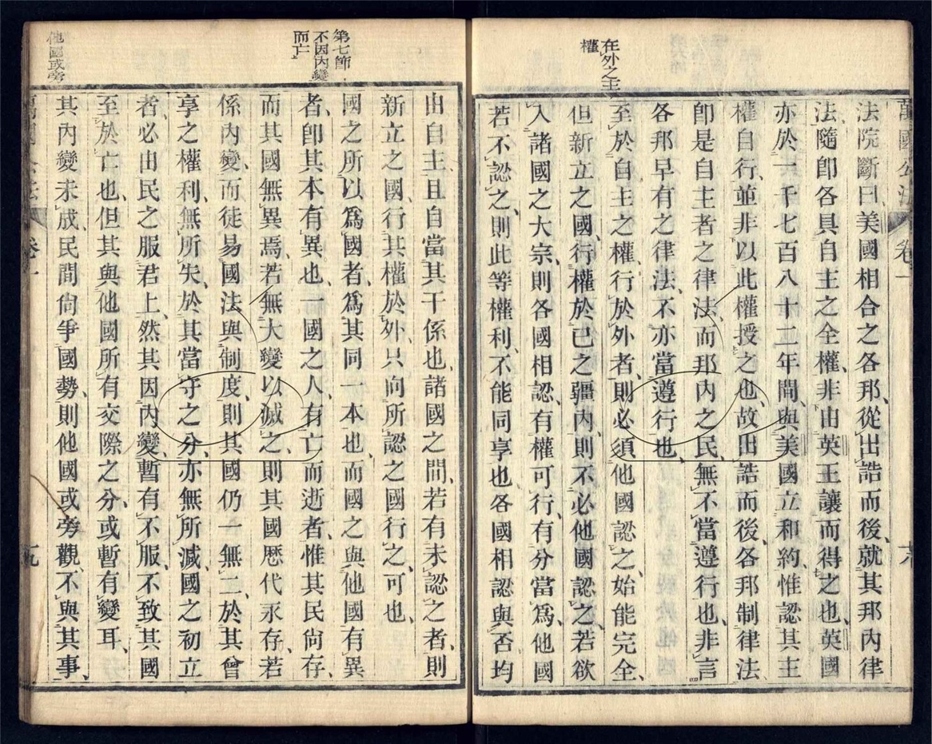 萬國公法 卷一 十八
在外之主
權
法院斷曰美國相合之各邦、從出誥而後、就其邦內律
法隨卽各具自主之全權、非由英王讓而得之也、英國
亦於一千七百八十二年間、與美國立和約、惟認其主
權自行、並非以此權授之也、故出誥而後、各邦制律法
卽是自主者之律法、而邦內之民、無不當遵行也、非言
各邦早有之律法、不亦當遵行也、
至於自主之權、行於外者、則必須他國認之、始能完全、
但新立之國、行權於己之疆內、則不必他國認之、若欲
入諸國之大宗、則各國相認、有權可行、有分當爲、他國
若不認之、則此等權利、不能同享也、各國相認與否、均
由自主、且自當其干係也、諸國之間、若有未認之者、則
新立之國、行其權於外、只向所認之國行之、可也、
第七節
不因內變
而亡
國之所以爲國者、爲其同一本也、而國之與他國有異
者、卽其本有異也、一國之人、有亡而逝者、惟其民尙存、
而其國無異焉、若無大變以滅之、則其國歷代永存、若
係內變、而徒易國法與制度、則其國仍一無二、於其曾
享之權利、無所失、於其當守之分、亦無所減、國之初立
者、必出民之服君上、然其因內變、暫有不服、不致其國
至於亡也、但其與他國所有交際之分、或暫有變耳、
他國或旁
其內變未成、民間尙爭國勢、則他國或旁觀不與其事、
萬國公法 卷一 十九